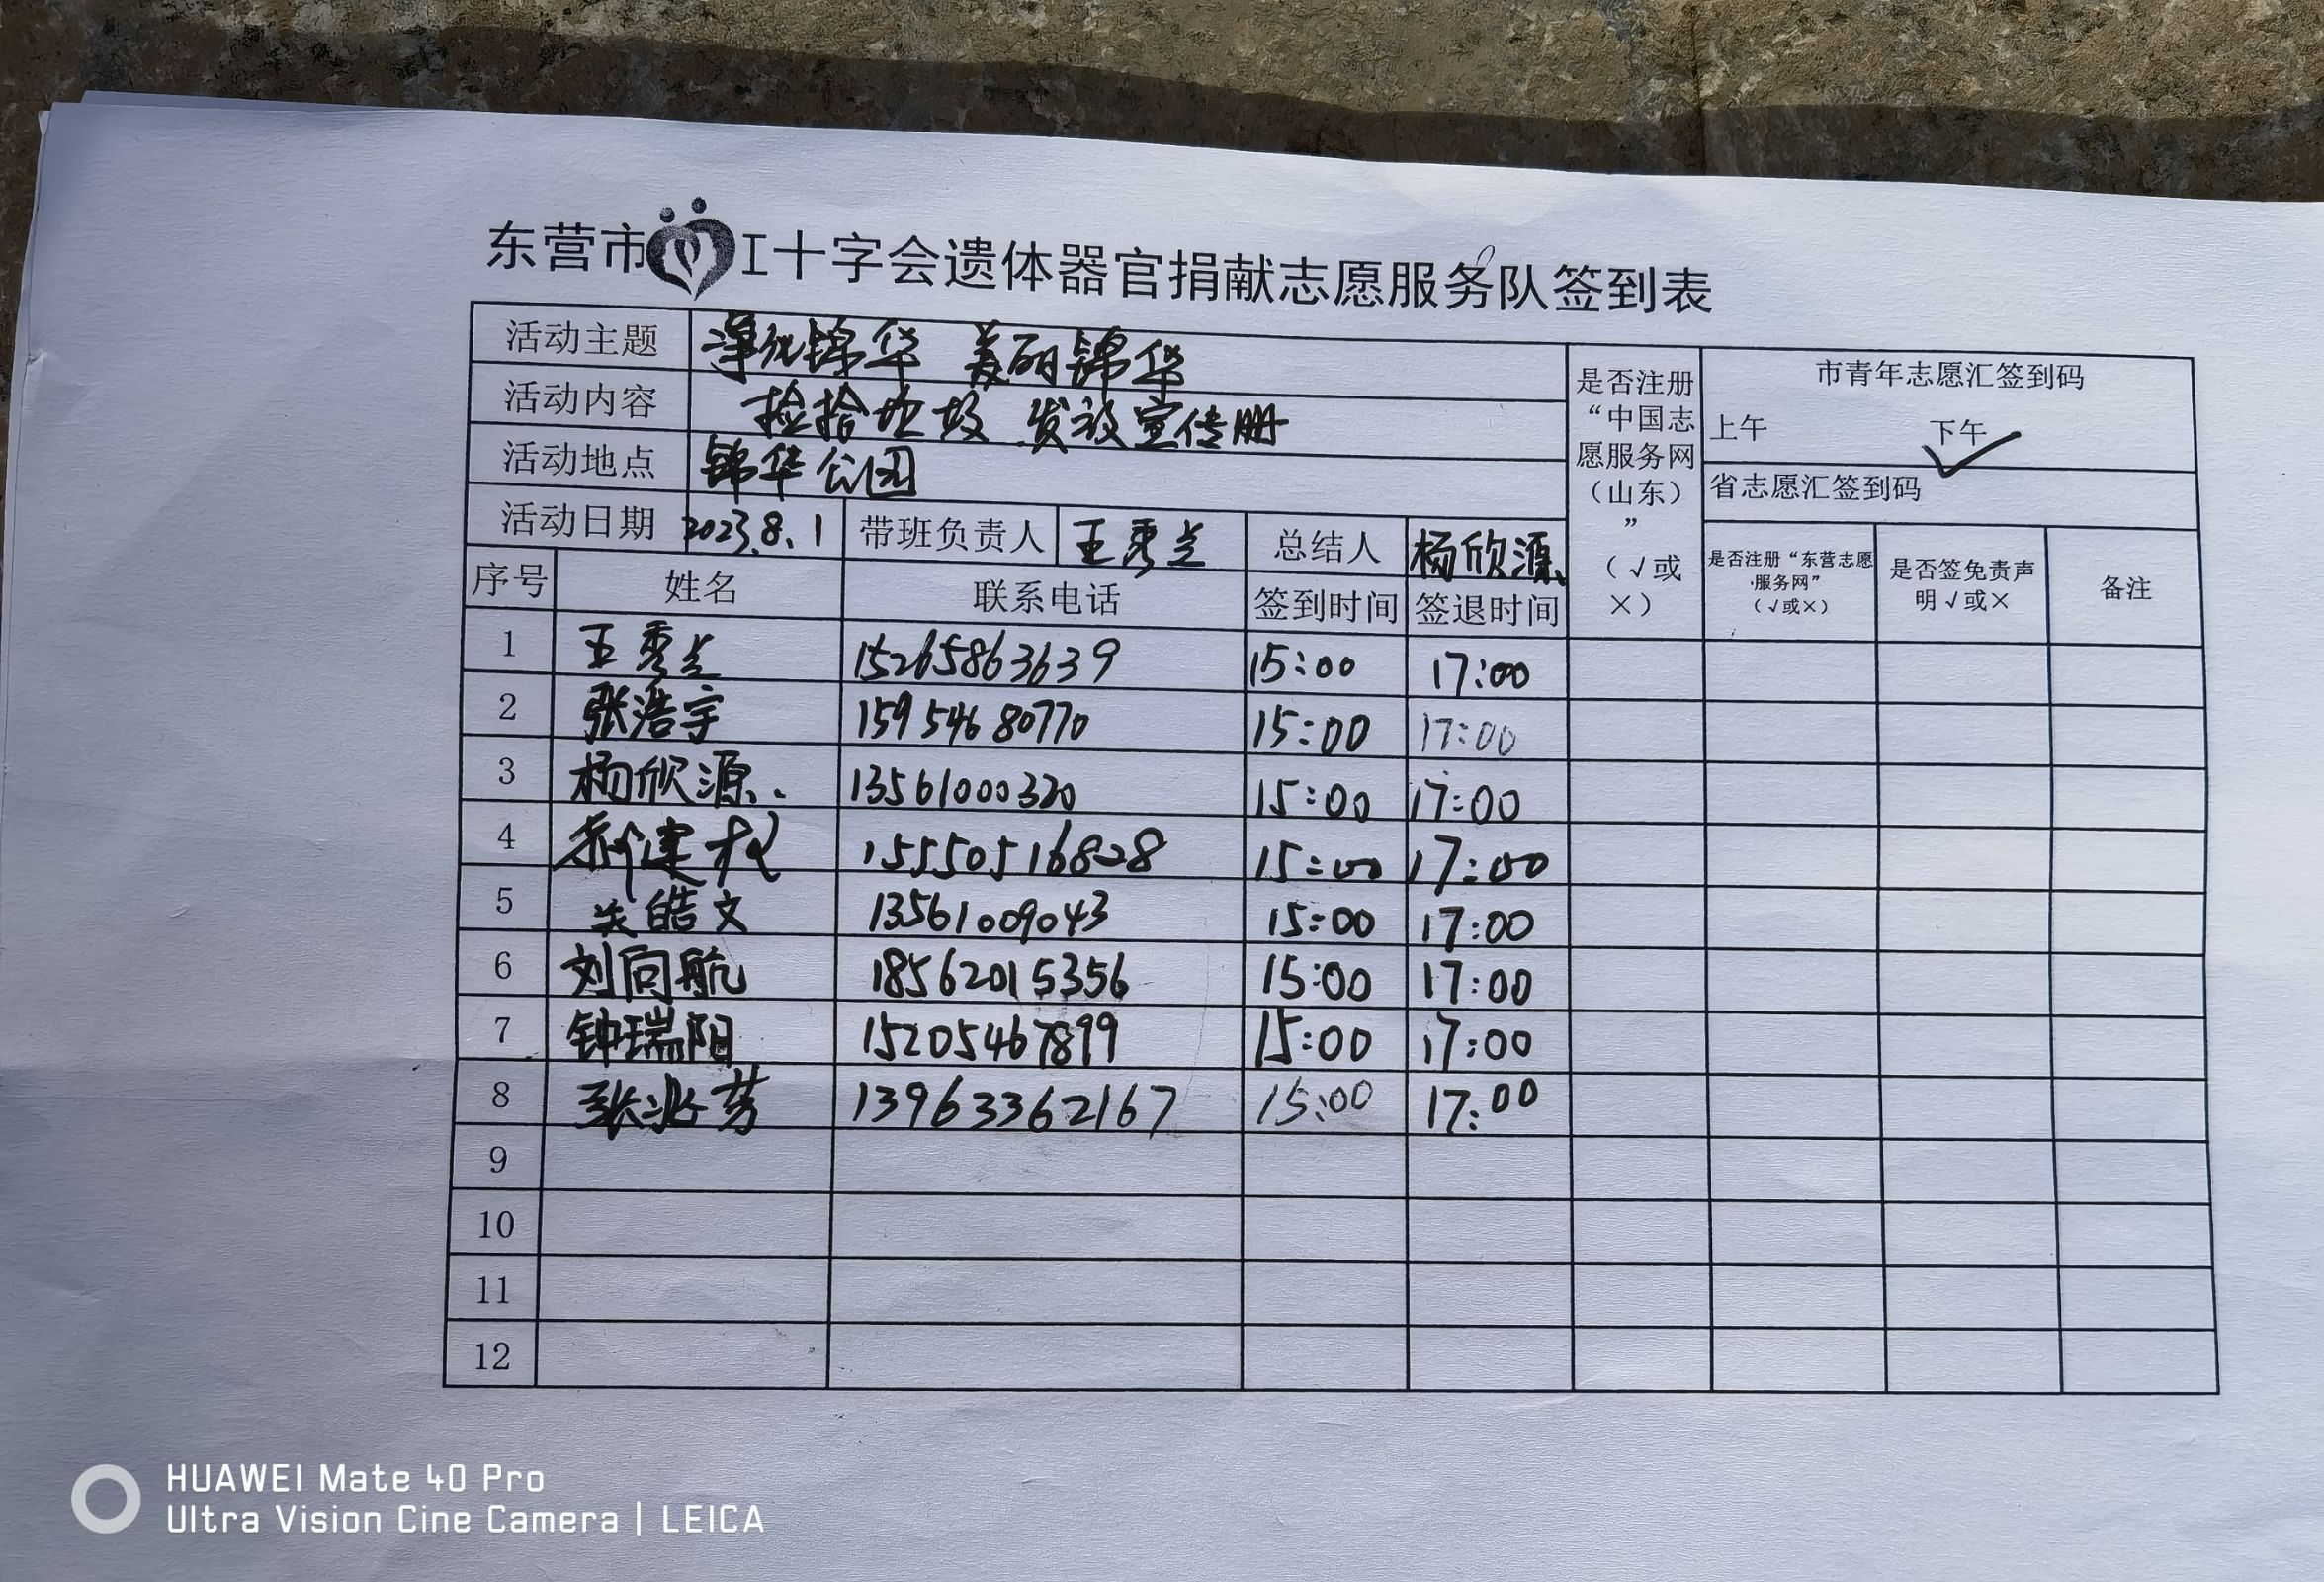 东营市 工十字会遗体器官捐献志愿服务队签到表
活动主题 净化锦华 美丽锦华
活动内容 捡拾垃圾 发放宣传册
活动地点 锦华公园
活动日期 2023.8.1 带班负责人 王秀兰 总结人 杨欣源
是否注册“中国志愿服务网（山东）”（√或×）
市青年志愿汇签到码
上午 下午 ✓
省志愿汇签到码
序号 姓名 联系电话 签到时间 签退时间 是否注册“东营志愿服务网”（√或×） 是否签免责声明√或× 备注
1 王秀兰 15265863639 15:00 17:00
2 张浩宇 15954680770 15:00 17:00
3 杨欣源 13561000320 15:00 17:00
4 15550516828 15:00 17:00
5 皓文 13561009043 15:00 17:00
6 刘向航 18562015356 15:00 17:00
7 钟瑞阳 15205467899 15:00 17:00
8 张兆芳 13963362167 15:00 17:00
9
10
11
12
HUAWEI Mate 40 Pro
Ultra Vision Cine Camera | LEICA